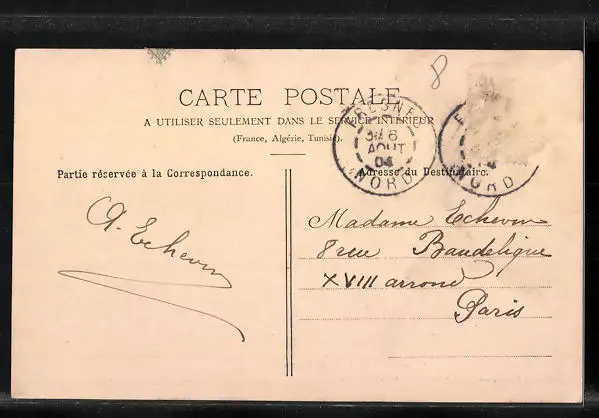 8
CARTE POSTALE
A UTILISER SEULEMENT DANS LE SERVICE INTÉRIEUR
(France, Algérie, Tunisie).
FRESNE
6
AOUT
04
NORD
NORD
Partie réservée à la Correspondance.
Adresse du Destinataire.
A. Echevin
Madame Echevin
8 rue Baudelique
XVIII arrond
Paris